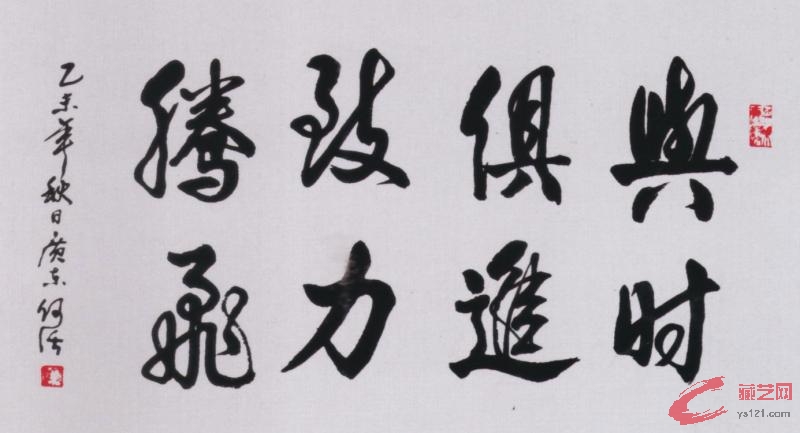 與时
俱進
致力
腾飛
乙未年秋日廣东何浩
藏艺网
ys121.com